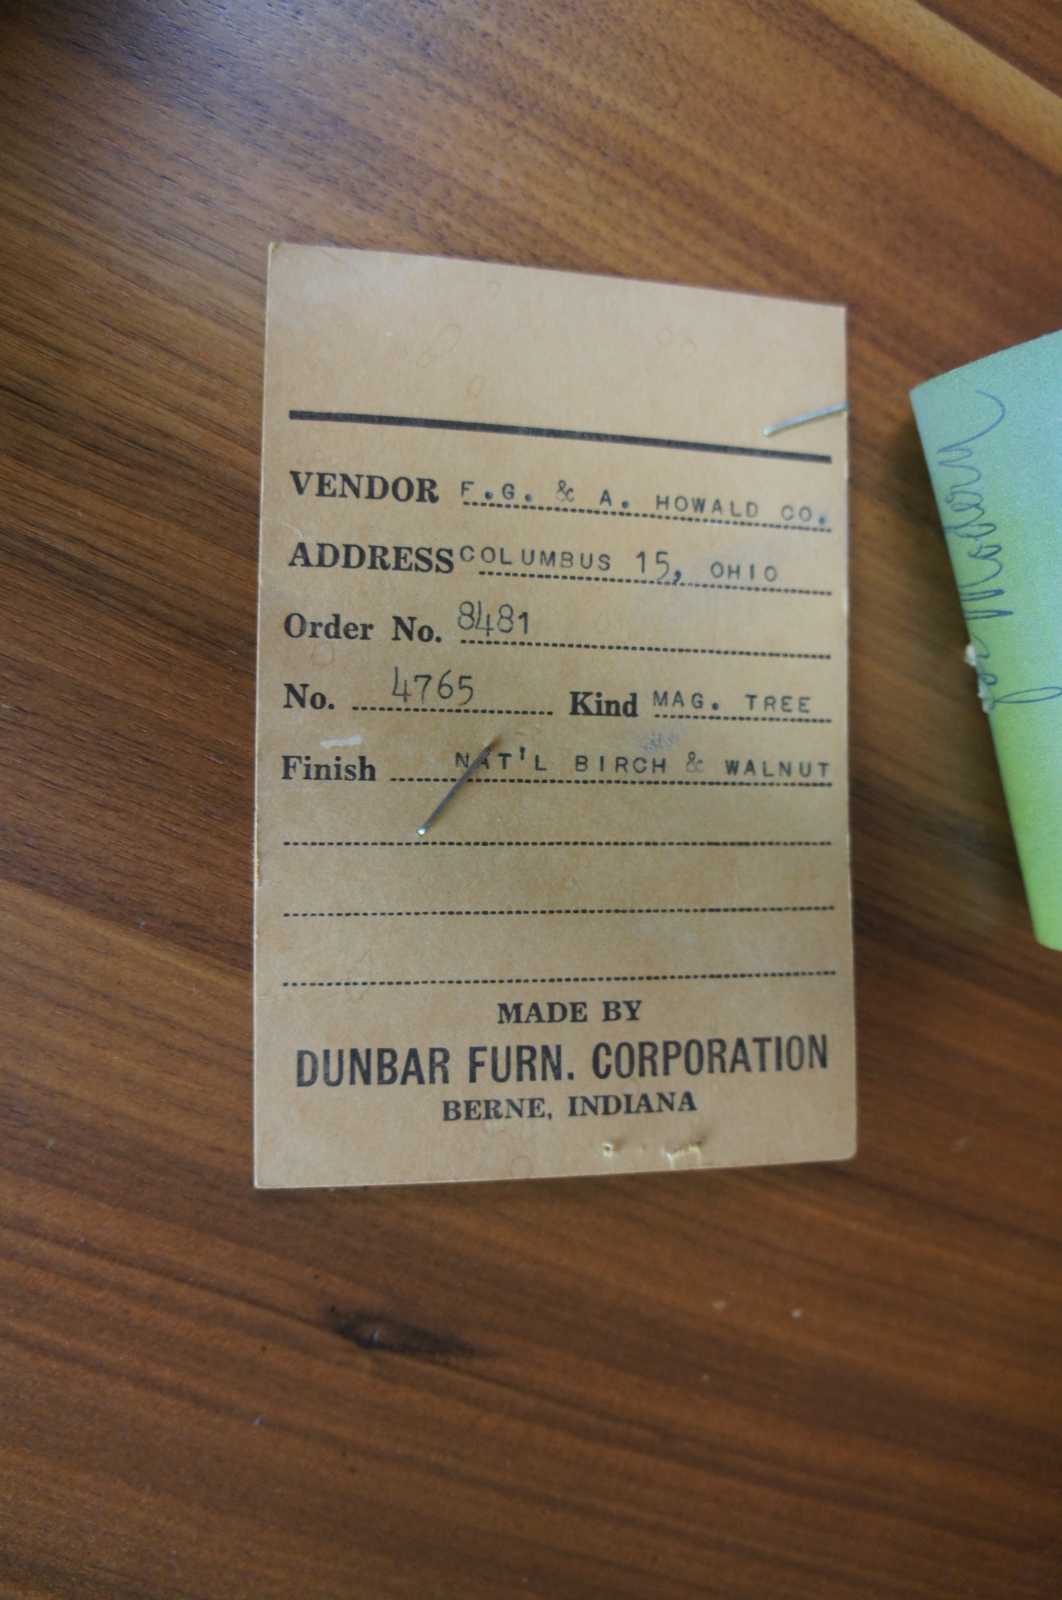 VENDOR F.G. & A. HOWALD CO.
ADDRESS COLUMBUS 15, OHIO
Order No. 8481
No. 4765 Kind MAG. TREE
Finish NAT'L BIRCH & WALNUT
MADE BY
DUNBAR FURN. CORPORATION
BERNE, INDIANA
Modern